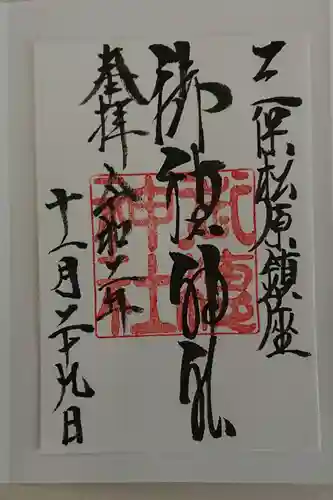 三保松原鎮座
御穂神社
奉拝
令和二年
十一月二十九日
御穂神社